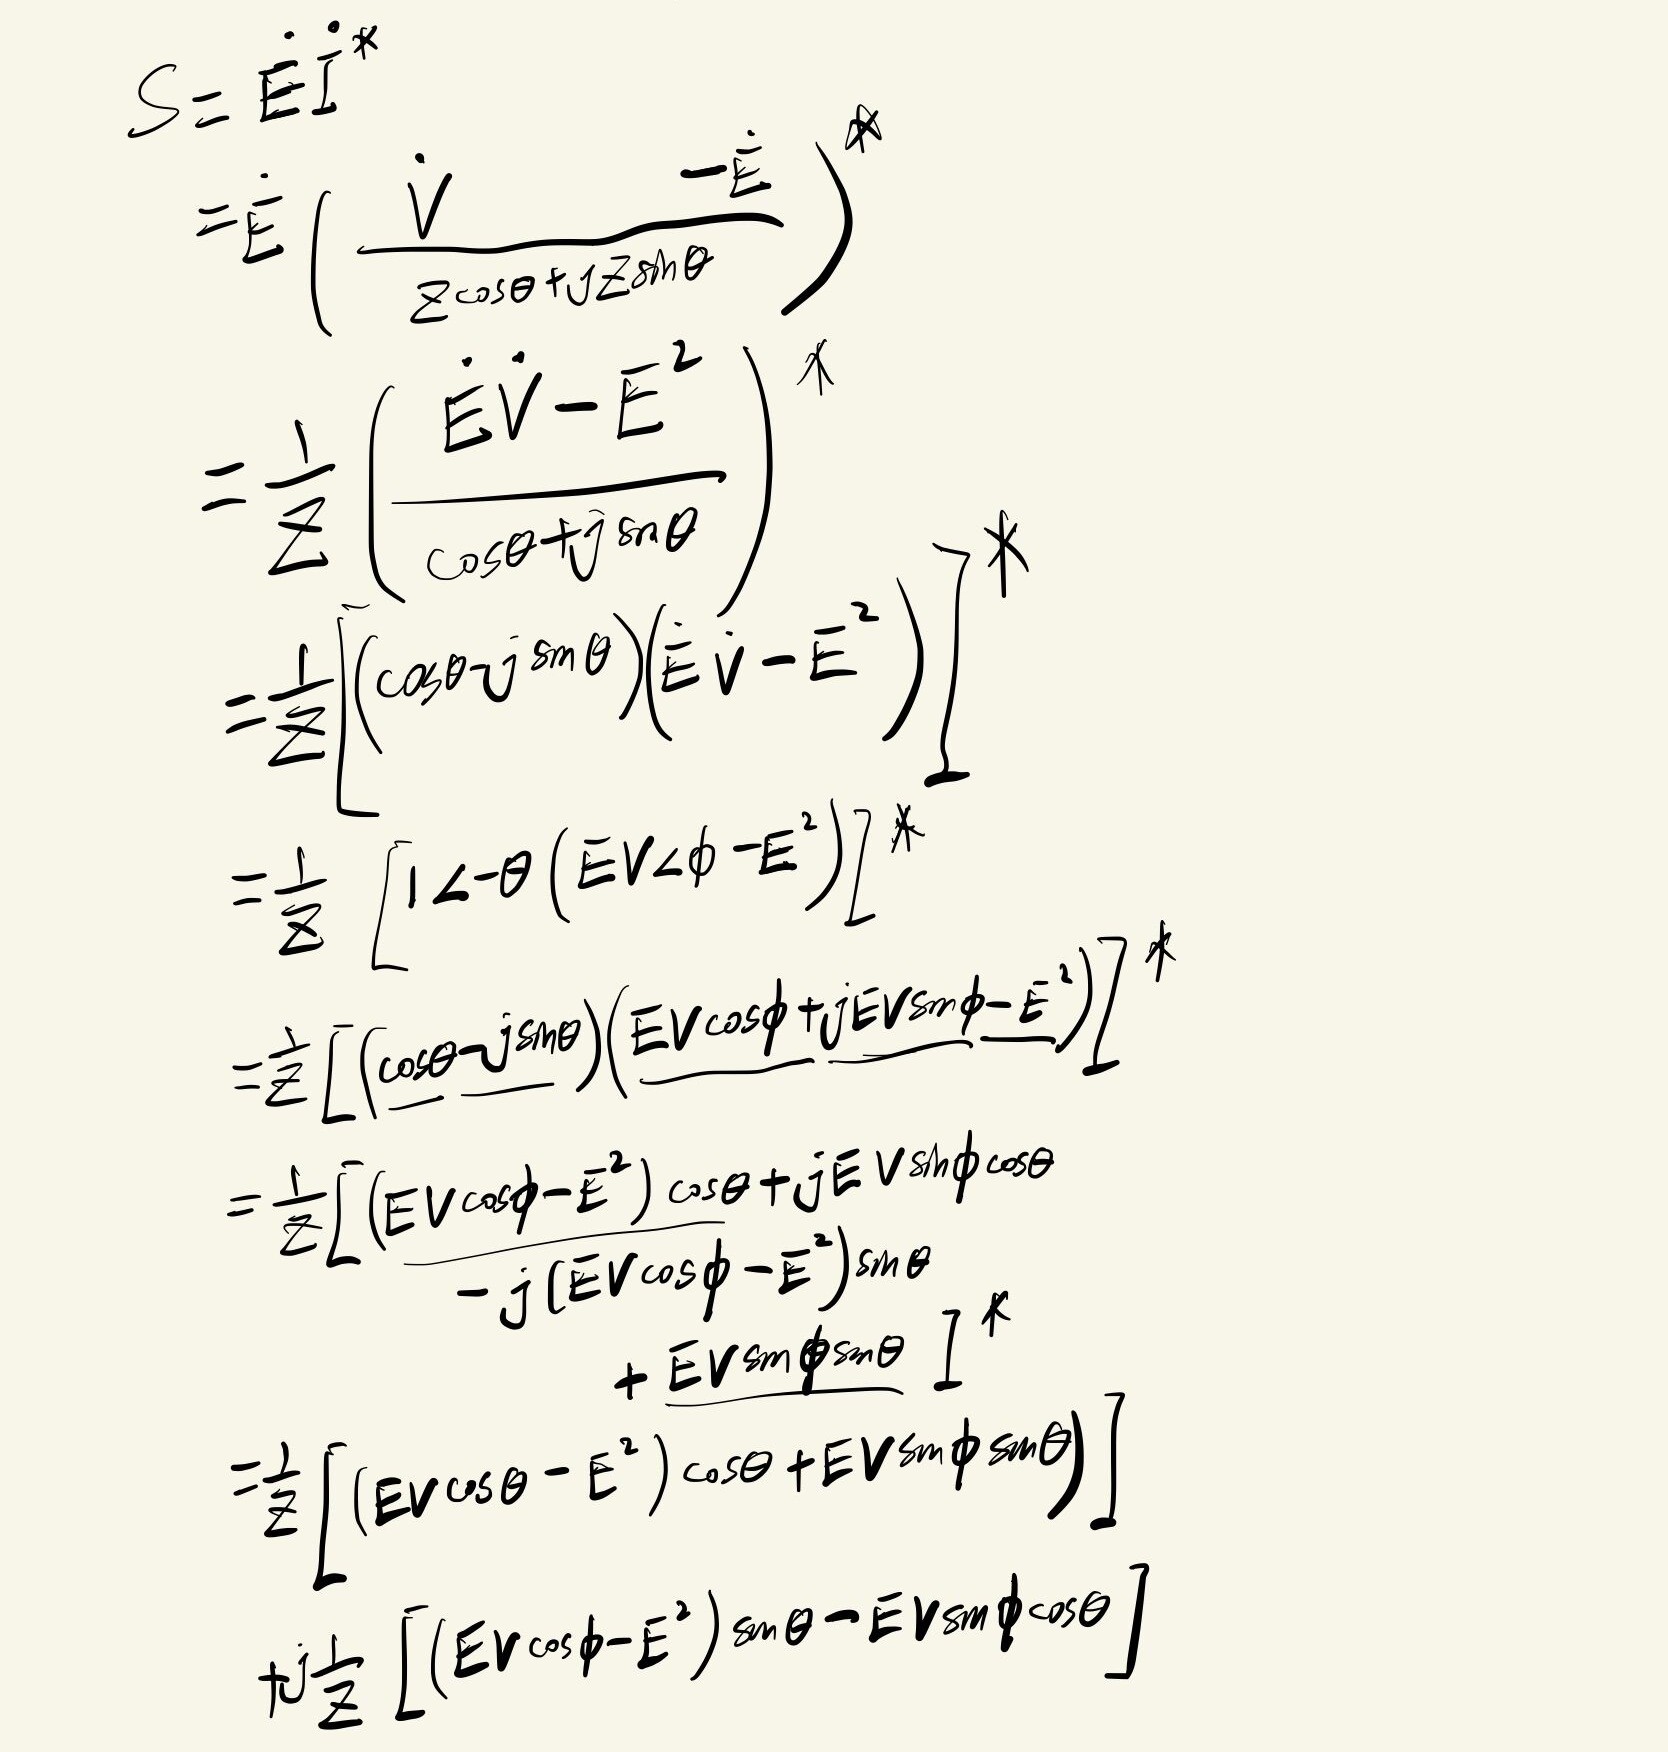 S = Ėİ*
= Ė ( (V̇ - Ė) / (Z cosθ + jZ sinθ) )*
= 1/Z ( (ĖV̇ - E²) / (cosθ + j sinθ) )*
= 1/Z [(cosθ - j sinθ)(ĖV̇ - E²)]*
= 1/Z [1∠-θ (EV∠φ - E²)]*
= 1/Z [(cosθ - j sinθ)(EV cosφ + jEV sinφ - E²)]*
= 1/Z [(EV cosφ - E²) cosθ + jEV sinφ cosθ
- j(EV cosφ - E²) sinθ
+ EV sinφ sinθ]*
= 1/Z [(EV cosθ - E²) cosθ + EV sinφ sinθ)]
+ j 1/Z [(EV cosφ - E²) sinθ - EV sinφ cosθ]